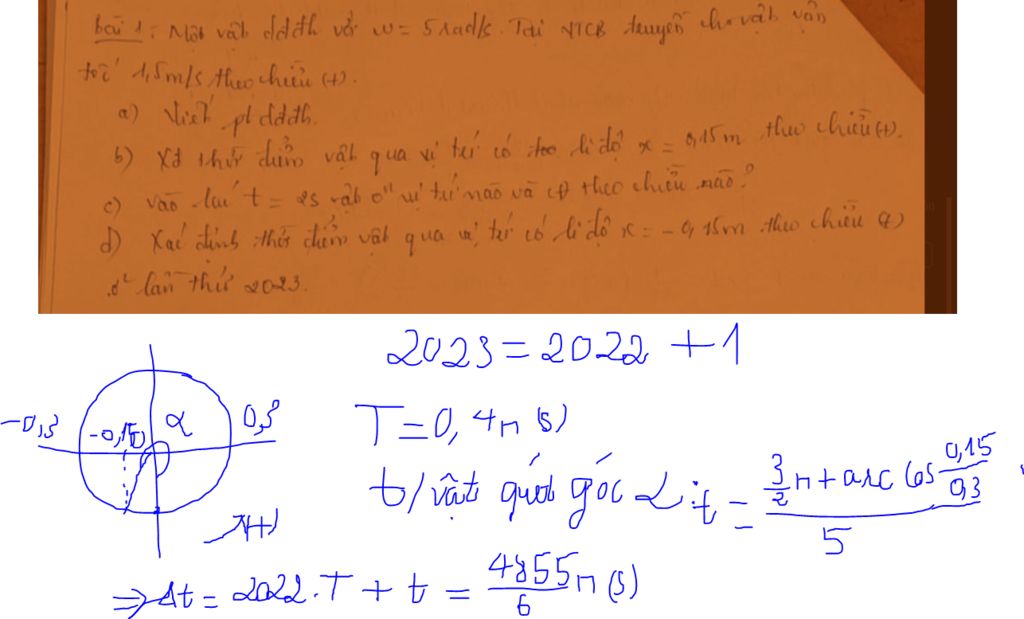 bài 1: Một vật dđđh với ω = 5 rad/s. Tại VTCB truyền cho vật vận
tốc 1,5m/s theo chiều (+).
a) Viết pt dđđh.
b) Xđ thời điểm vật qua vị trí có li độ x = 0,15m theo chiều (+).
c) vào lúc t = 2s vật ở vị trí nào và cđ theo chiều nào?
d) Xác định thời điểm vật qua vị trí có li độ x = -0,15m theo chiều (+)
lần thứ 2023.
2023 = 2022 + 1
-0,3 -0,15 0 α 0,3
T = 0,4π (s)
t/vật quét góc α: t = (3/2 π + arc cos 0,15/0,3)/5
(+)
⇒ Δt = 2022.T + t = 4855/6 π (s)